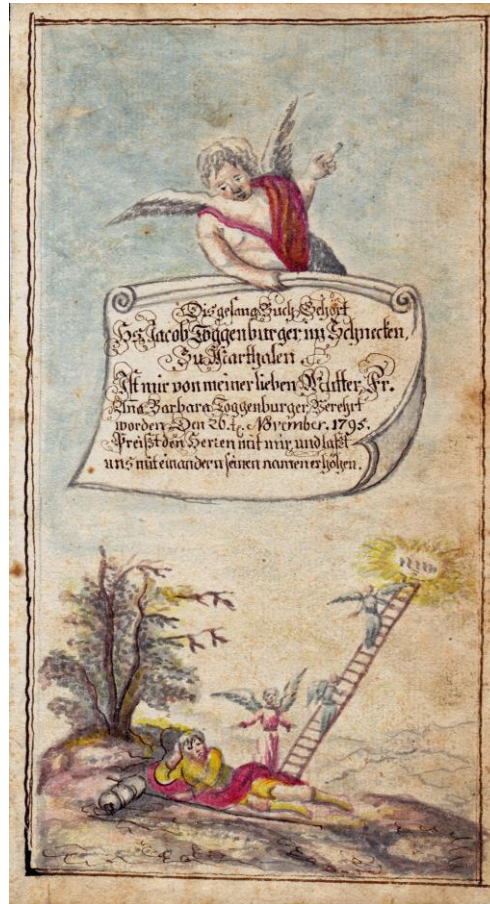 Dis gesang Buch Gehört
Hs. Jacob Toggenburger im Schnecken,
Zu Marthalen.
Ist mir von meiner lieben Mutter, Fr.
Anna Barbara Toggenburger, Verehrt
worden. Den 26.tg. November. 1795.
Preißt den Herren mit mir, und laßt
uns mit einandern seinen namen erhöhen.